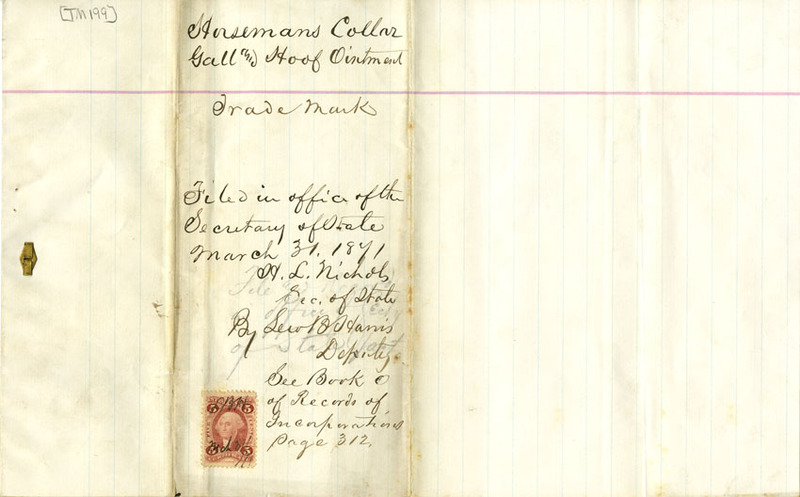 [TM 199]
Horsemans Collar
Gall and Hoof Ointment
Trade Mark
Filed in office of the
Secretary of State
March 31, 1871
H. L. Nichols
Sec. of State
By Lew B Harris
Deputy
See Book O
of Records of
Incorporations
Page 312.
5 5
5 5